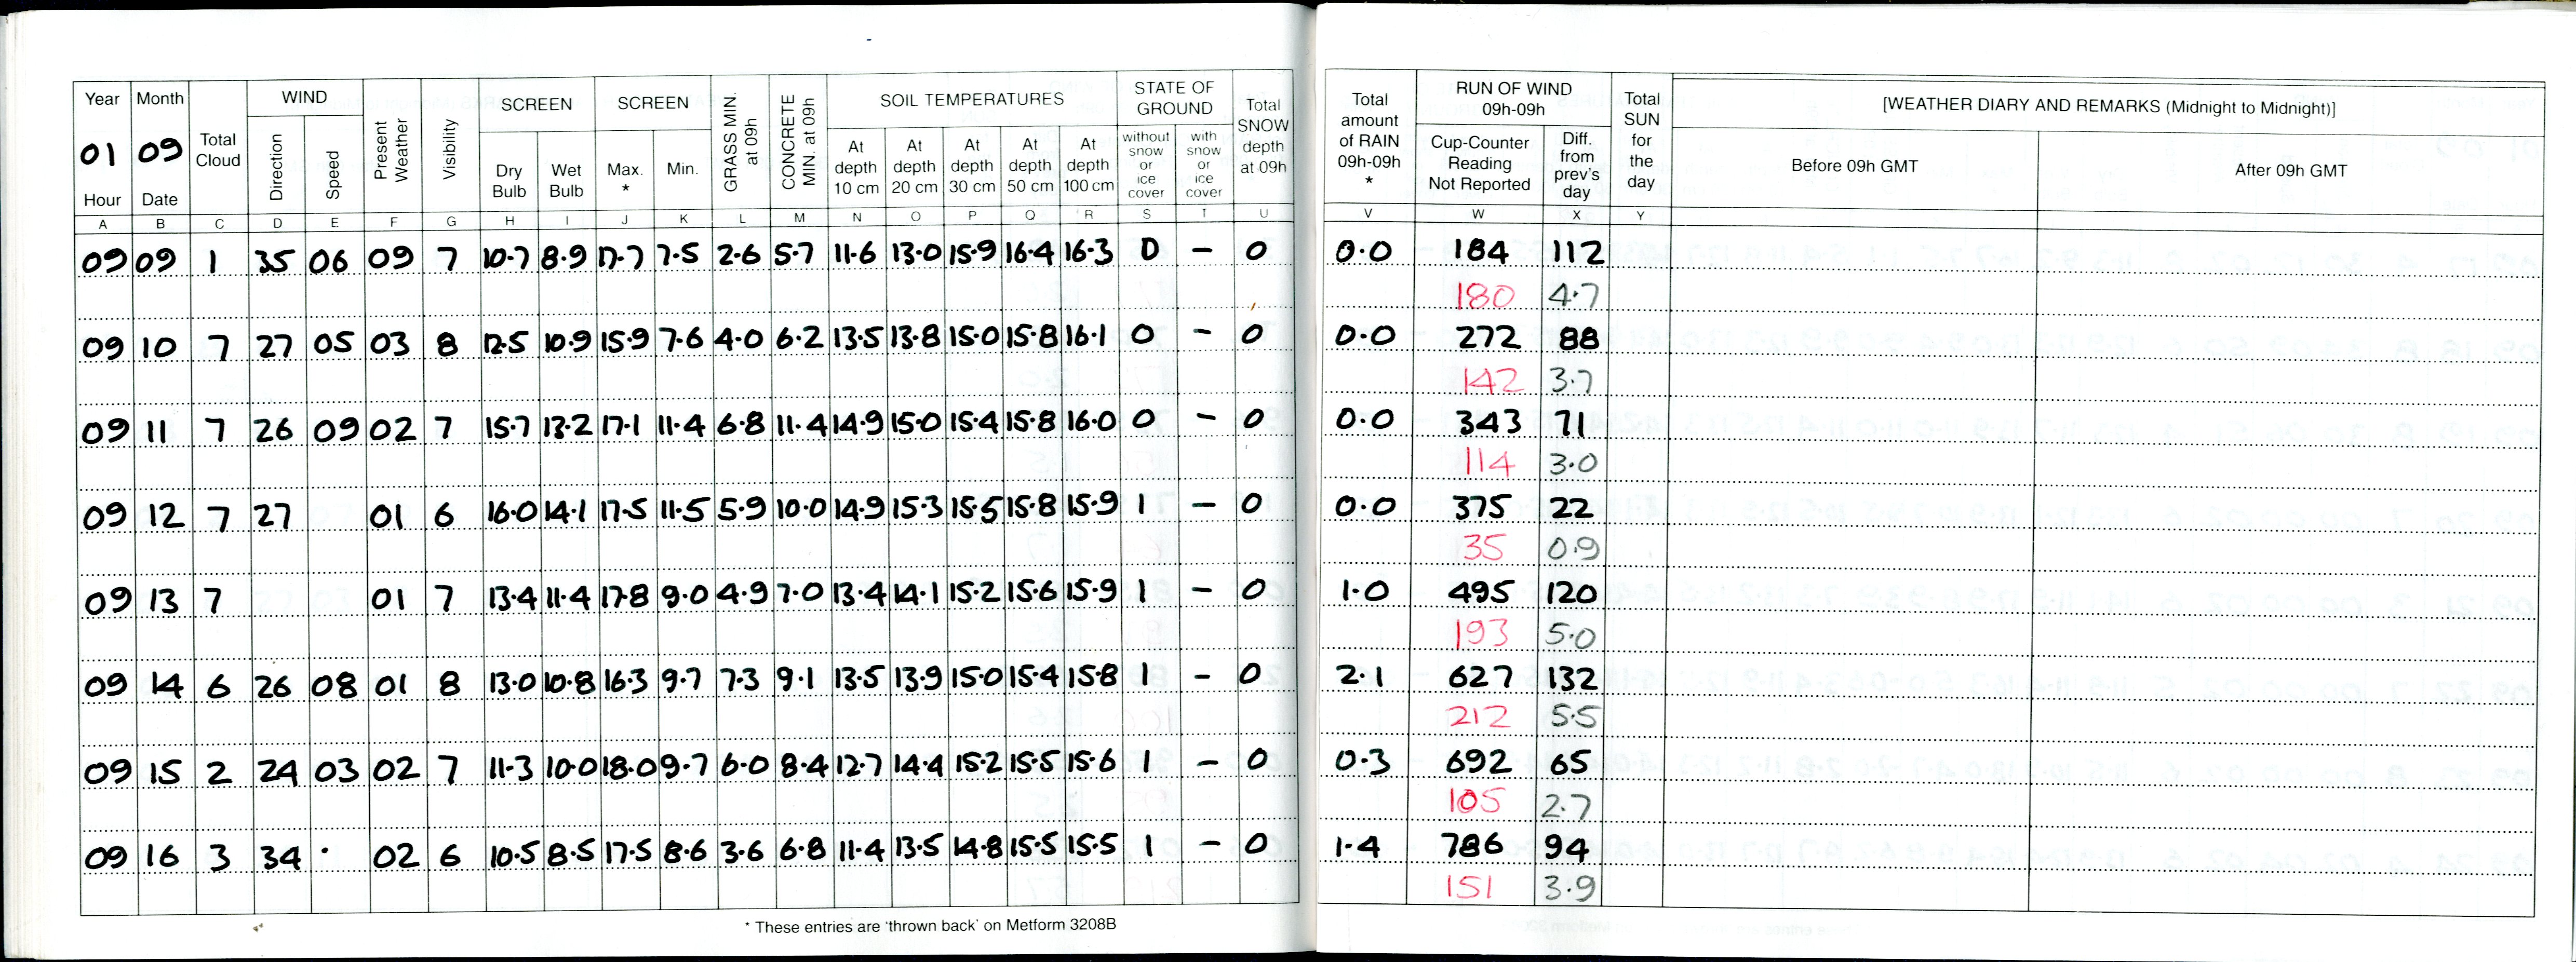 Year Month Total Cloud WIND Present Weather Visibility SCREEN SCREEN GRASS MIN. at 09h CONCRETE MIN. at 09h SOIL TEMPERATURES STATE OF GROUND Total SNOW depth at 09h Total amount of RAIN 09h-09h * RUN OF WIND 09h-09h Total SUN for the day [WEATHER DIARY AND REMARKS (Midnight to Midnight)]
01 09 Direction Speed Dry Bulb Wet Bulb Max. * Min. At depth 10 cm At depth 20 cm At depth 30 cm At depth 50 cm At depth 100 cm without snow or ice cover with snow or ice cover Cup-Counter Reading Not Reported Diff. from prev's day Before 09h GMT After 09h GMT
Hour Date
A B C D E F G H I J K L M N O P Q R S T U V W X Y
09 09 1 35 06 09 7 10.7 8.9 17.7 7.5 2.6 5.7 11.6 13.0 15.9 16.4 16.3 0 – 0 0.0 184 112
180 4.7
09 10 7 27 05 03 8 12.5 10.9 15.9 7.6 4.0 6.2 13.5 13.8 15.0 15.8 16.1 0 – 0 0.0 272 88
142 3.7
09 11 7 26 09 02 7 15.7 13.2 17.1 11.4 6.8 11.4 14.9 15.0 15.4 15.8 16.0 0 – 0 0.0 343 71
114 3.0
09 12 7 27 01 6 16.0 14.1 17.5 11.5 5.9 10.0 14.9 15.3 15.5 15.8 15.9 1 – 0 0.0 375 22
35 0.9
09 13 7 01 7 13.4 11.4 17.8 9.0 4.9 7.0 13.4 14.1 15.2 15.6 15.9 1 – 0 1.0 495 120
193 5.0
09 14 6 26 08 01 8 13.0 10.8 16.3 9.7 7.3 9.1 13.5 13.9 15.0 15.4 15.8 1 – 0 2.1 627 132
212 5.5
09 15 2 24 03 02 7 11.3 10.0 18.0 9.7 6.0 8.4 12.7 14.4 15.2 15.5 15.6 1 – 0 0.3 692 65
105 2.7
09 16 3 34 02 6 10.5 8.5 17.5 8.6 3.6 6.8 11.4 13.5 14.8 15.5 15.5 1 – 0 1.4 786 94
151 3.9
* These entries are 'thrown back' on Metform 3208B